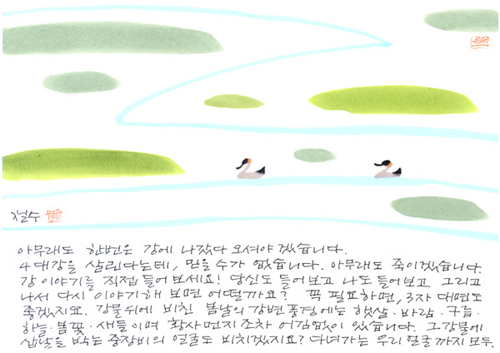 철수
아무래도 한번은 강에 나갔다 오셔야 겠습니다.
4대강을 살린다는데, 믿을 수가 없습니다. 아무래도 죽이겠습니다.
강 이야기를 직접 들어보세요! 당신도 들어보고 나도 들어보고 그리고
나서 다시 이야기해 보면 어떨까요? 꼭 필요하면, 3자 대면도
좋겠지요. 강물위에 비친 봄날의 강변 풍경에는 햇살·바람·구름·
하늘·불꽃·새들이며 황사먼지 조차 어김없이 있습니다. 그 강물에
삽날을 박는 중장비의 얼굴도 비치겠지요? 다녀가는 우리 얼굴까지 모두.